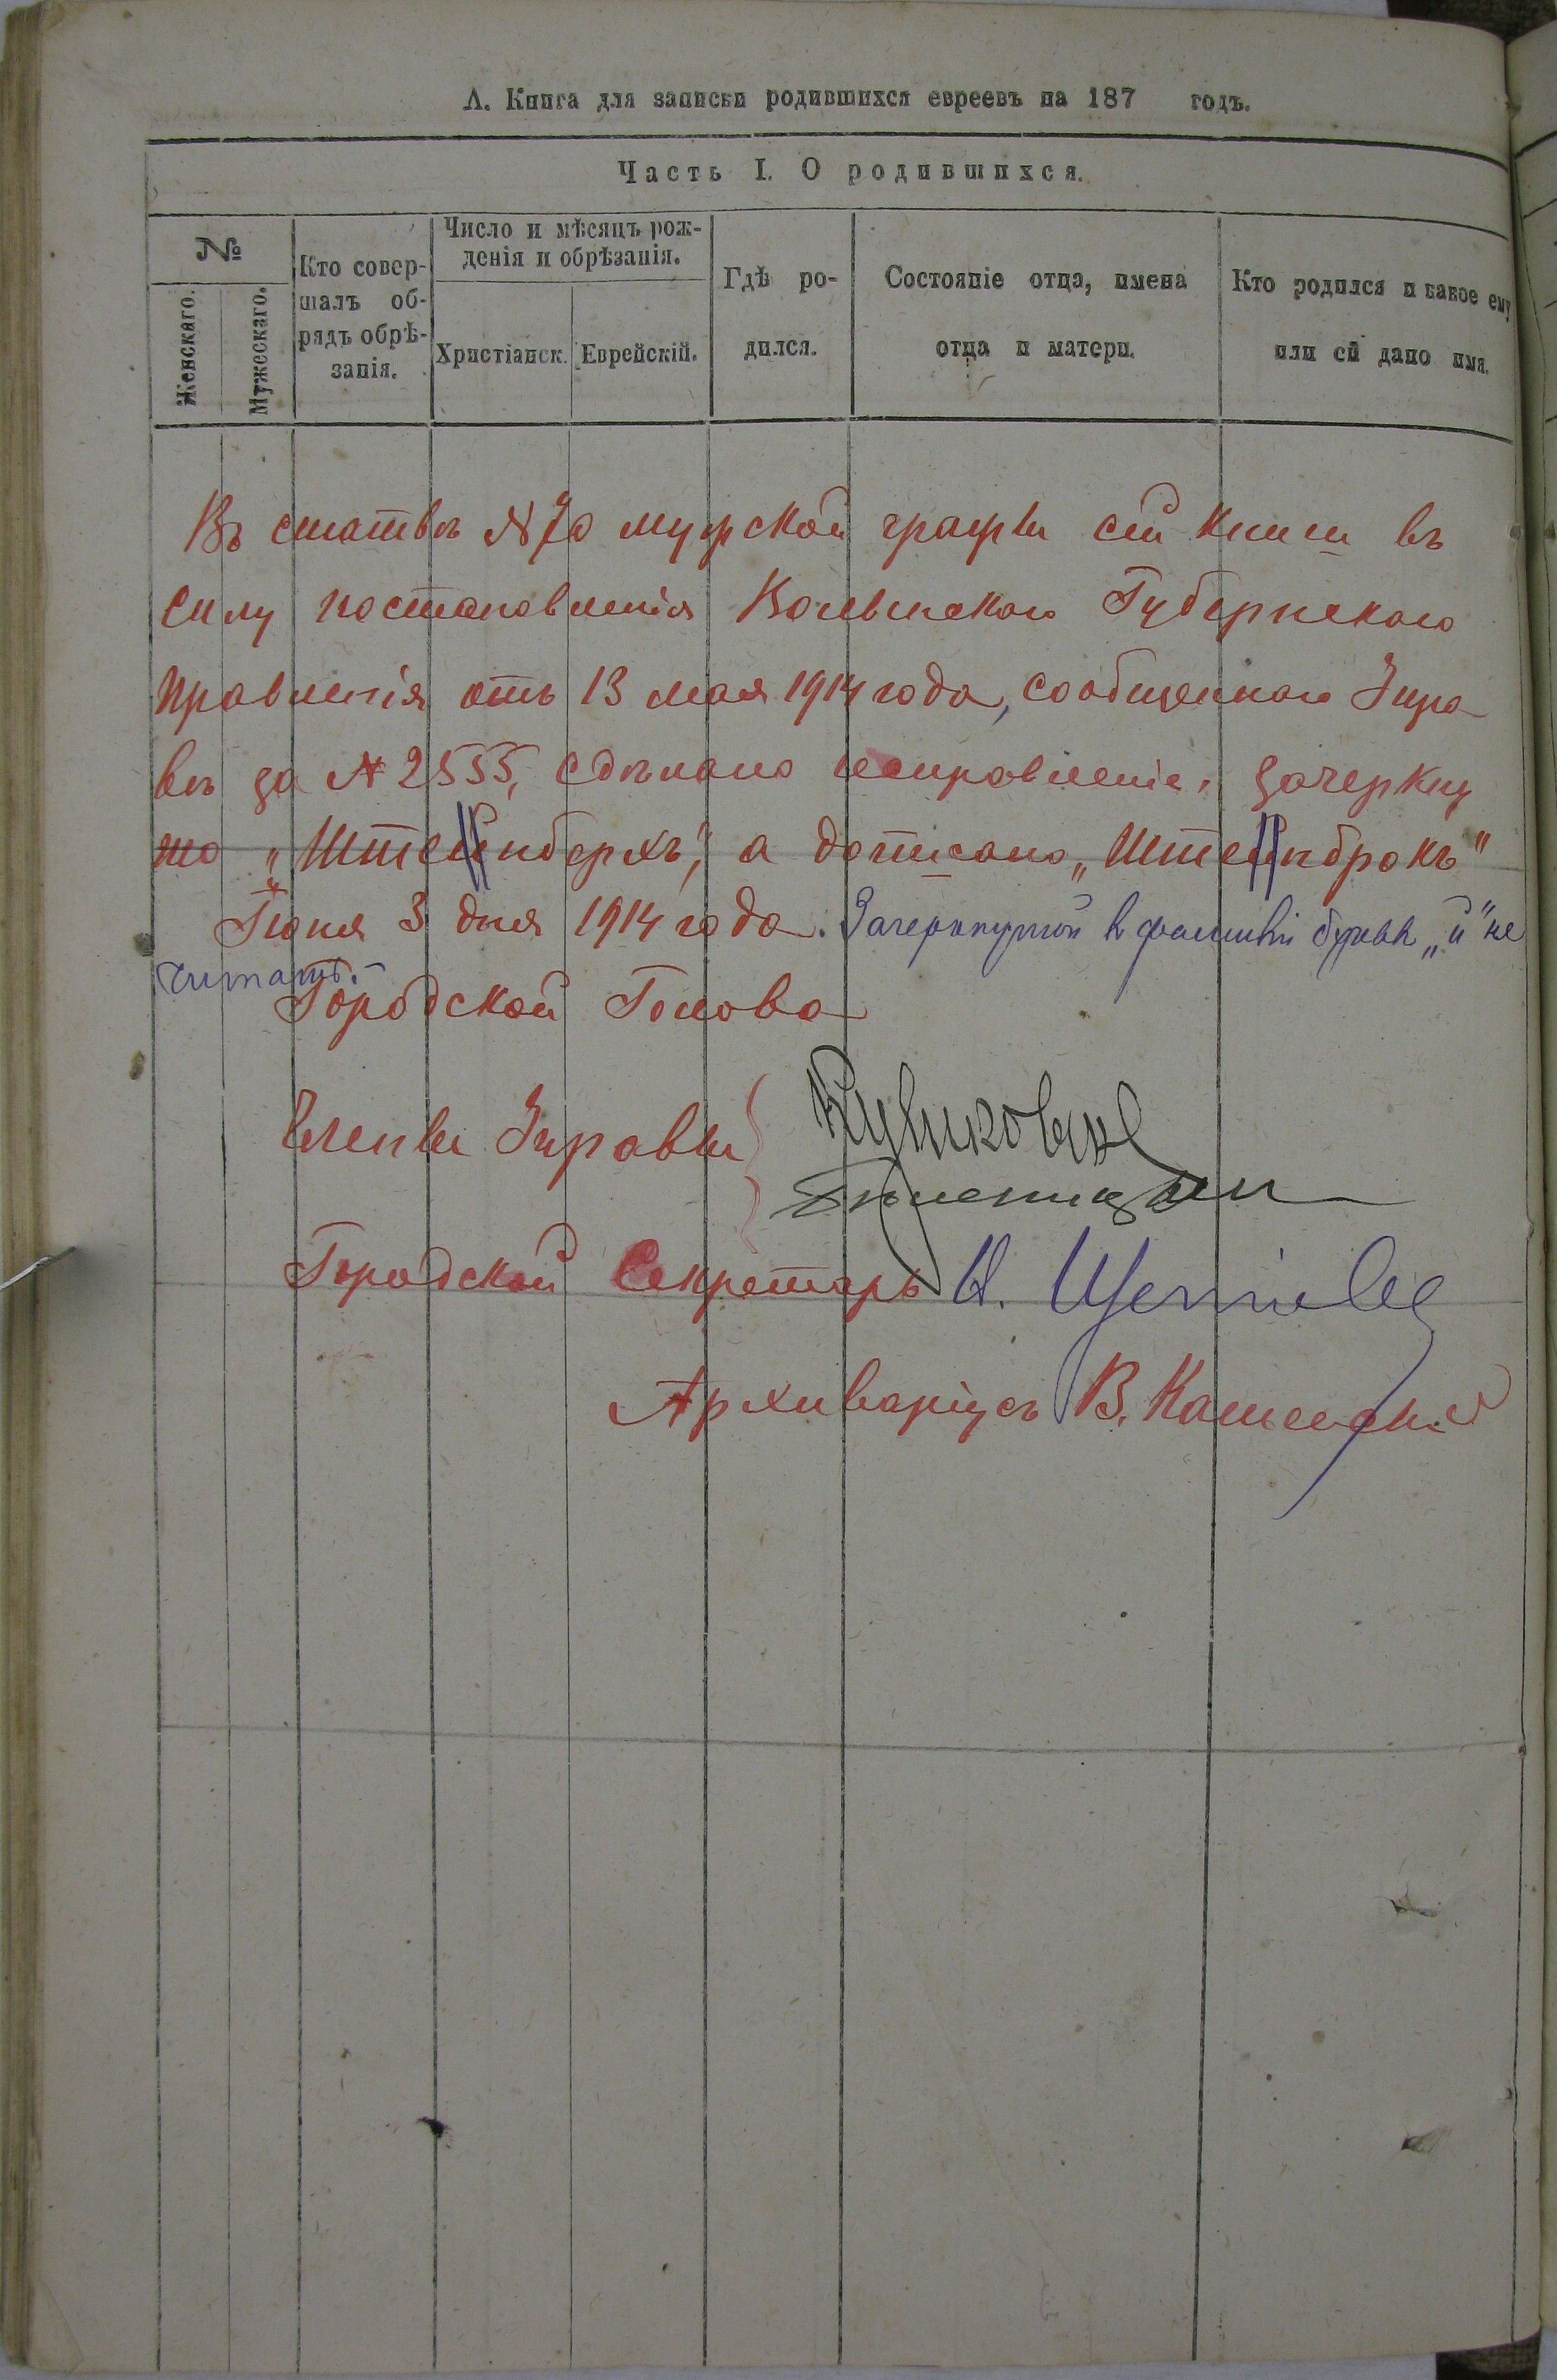 А. Книга для записки родившихся евреевъ на 187 годъ.
Часть I. О родившихся.
№
Женскаго.
Мужескаго.
Кто совер-
шалъ об-
рядъ обрѣ-
занія.
Число и мѣсяцъ рож-
денія и обрѣзанія.
Христіанск.
Еврейскій.
Гдѣ ро-
дился.
Состояніе отца, имена
отца и матери.
Кто родился и какое ему
или ей дано имя.
Въ статьѣ № 70 мужской графы сей книги въ
силу постановленія Волынскаго Губернскаго
Правленія отъ 13 мая 1914 года, сообщеннаго Упра
вѣ за № 2555, сдѣлано исправленіе, зачеркну
то „Штейнберхъ", а дописано „Штейнброкъ"
Іюня 3 дня 1914 года. Зачеркнутой в фамиліи буквы „й" не
читать.-
Городской Голова
Члены Управы
Городской Секретарь
Архиваріусъ В.